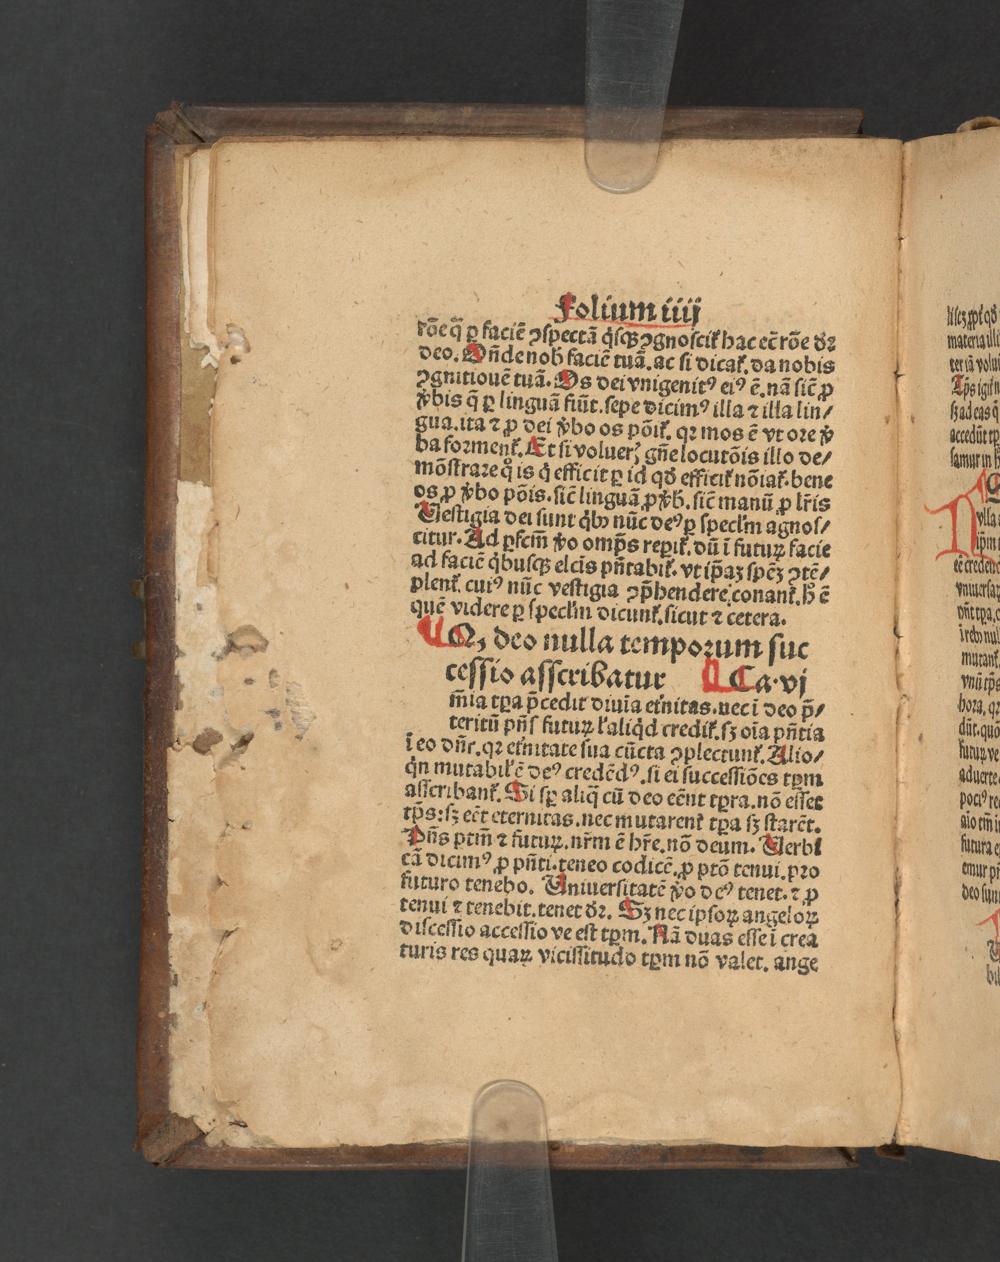 Folium iiij
rōe q̄ ꝑ faciē ꝯspectā q̇sqꝫ ꝯgnoscit᷑ hac ec̄ rōe dꝛ
deo. Oñde nob̄ faciē tuā. ac si dicat᷑. da nobis
ꝯgnitiouē tuā. Os dei vnigenitꝰ eiꝰ ē. nā sic̄ ꝓ
v̄bis q̄ ꝑ linguā fiūt. sepe dicimꝰ illa ⁊ illa lin/
gua. ita ⁊ ꝓ dei v̄bo os pōit᷑. qꝛ mos ē vt ore v̄
ba forment᷑. Et si voluerꝭ gn̄e locutōis illo de/
mōstrare q̊ is q̇ efficit ꝑ id qd̄ efficit᷑ nōiat᷑. bene
os ꝓ v̄bo pōis. sic̄ linguā ꝓ v̄b. sic̄ manū ꝓ lr̄is
Uestigia dei sunt q̇bꝫ nūc deꝰ ꝑ specl'm agnos/
citur. Ad ꝑfcm̄ v̄o omp̄s reꝑit᷑. dū ī futuꝝ facie
ad faciē q̇busqꝫ elcīs pn̄tabit᷑. vt ip̄aꝫ spēꝫ ꝯtē/
plent᷑. cuiꝰ nūc vestigia ꝯp̄hendere conant᷑. h̄ ē
quē videre ꝑ specl'm dicunt᷑. sicut ⁊ cetera.
Qꝫ deo nulla temporum suc
cessio asscribatur Ca. vj
m̄ia tꝑa p̄cedit diuīa et'nitas. uec ī deo p̄/
teritū pn̄s futuꝝ l'aliq̇d credit᷑. sꝫ oīa pn̄tia
ī eo dn̄r. qꝛ et'nitate sua cūcta ꝯplectunt᷑. Alio/
q̇n mutabil'ē deꝰ credēdꝰ. si ei successiōes tꝑm
asscribant᷑. Si sꝑ aliq̄ cū deo eēnt tꝑra. nō esset
tp̄s: sꝫ eēt eternitas. nec mutarent tꝑa sꝫ starēt.
Pn̄s ptm̄ ⁊ futuꝝ. nr̄m ē hr̄e. nō deum. Uerbi
cā dicimꝰ ꝓ pn̄ti. teneo codicē. ꝓ ptō tenui. pro
futuro tenebo. Uniuersitatē v̄o deꝰ tenet. ⁊ ꝓ
tenui ⁊ tenebit. tenet dꝛ. Sꝫ nec ipsoꝝ angeloꝝ
discessio accessio ve est tꝑm. Nā duas esse ī crea
turis res quaꝝ vicissitudo tꝑm nō valet. ange